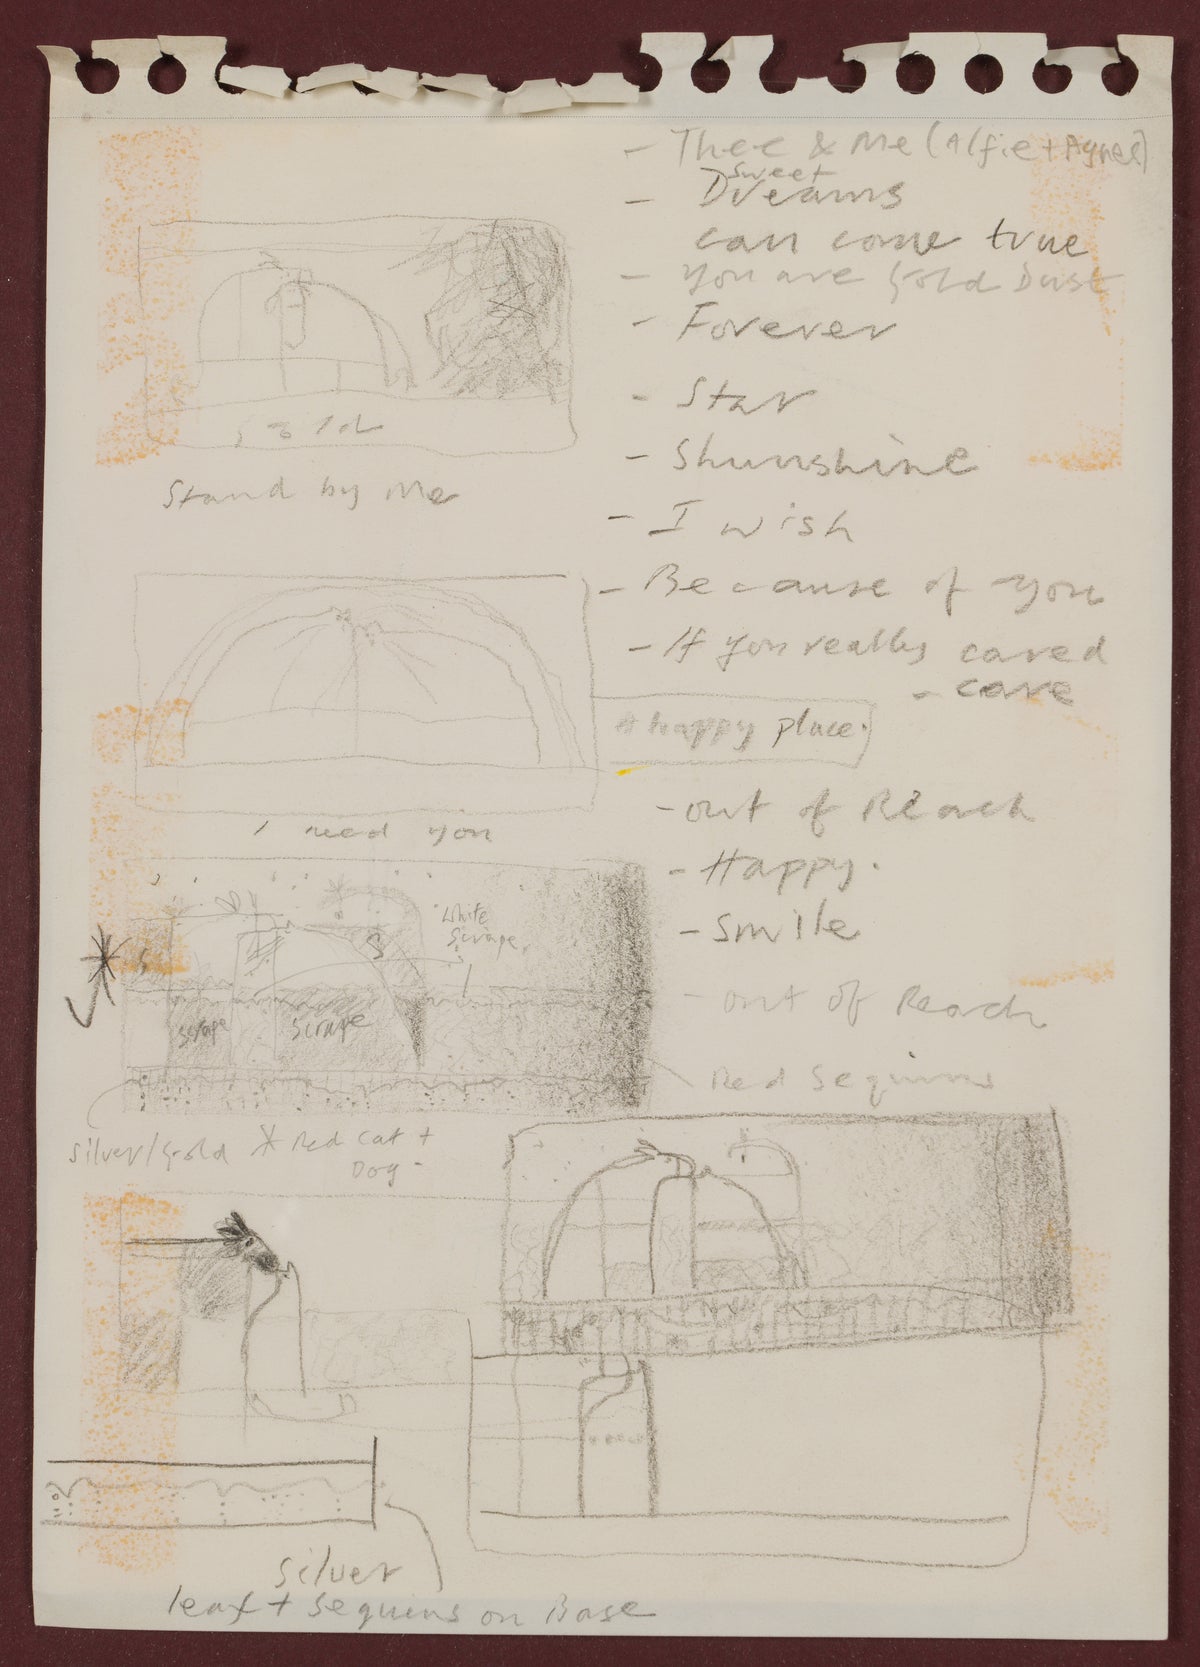 - Thee & Me (Alfie + Agnes)
sweet
- Dreams
can come true
- You are Gold Dust
- Forever
- Star
- Shunshine
- I wish
- Because of you
- If you really cared
- care
A happy place.
- out of Reach
- Happy.
- Smile
- out of Reach
Red Sequins
Gold
Stand by Me
I need you
White
Scrape
scrape
Scrape
Silver/Gold * Red Cat +
Dog -
Silver
leaf + Sequins on Base